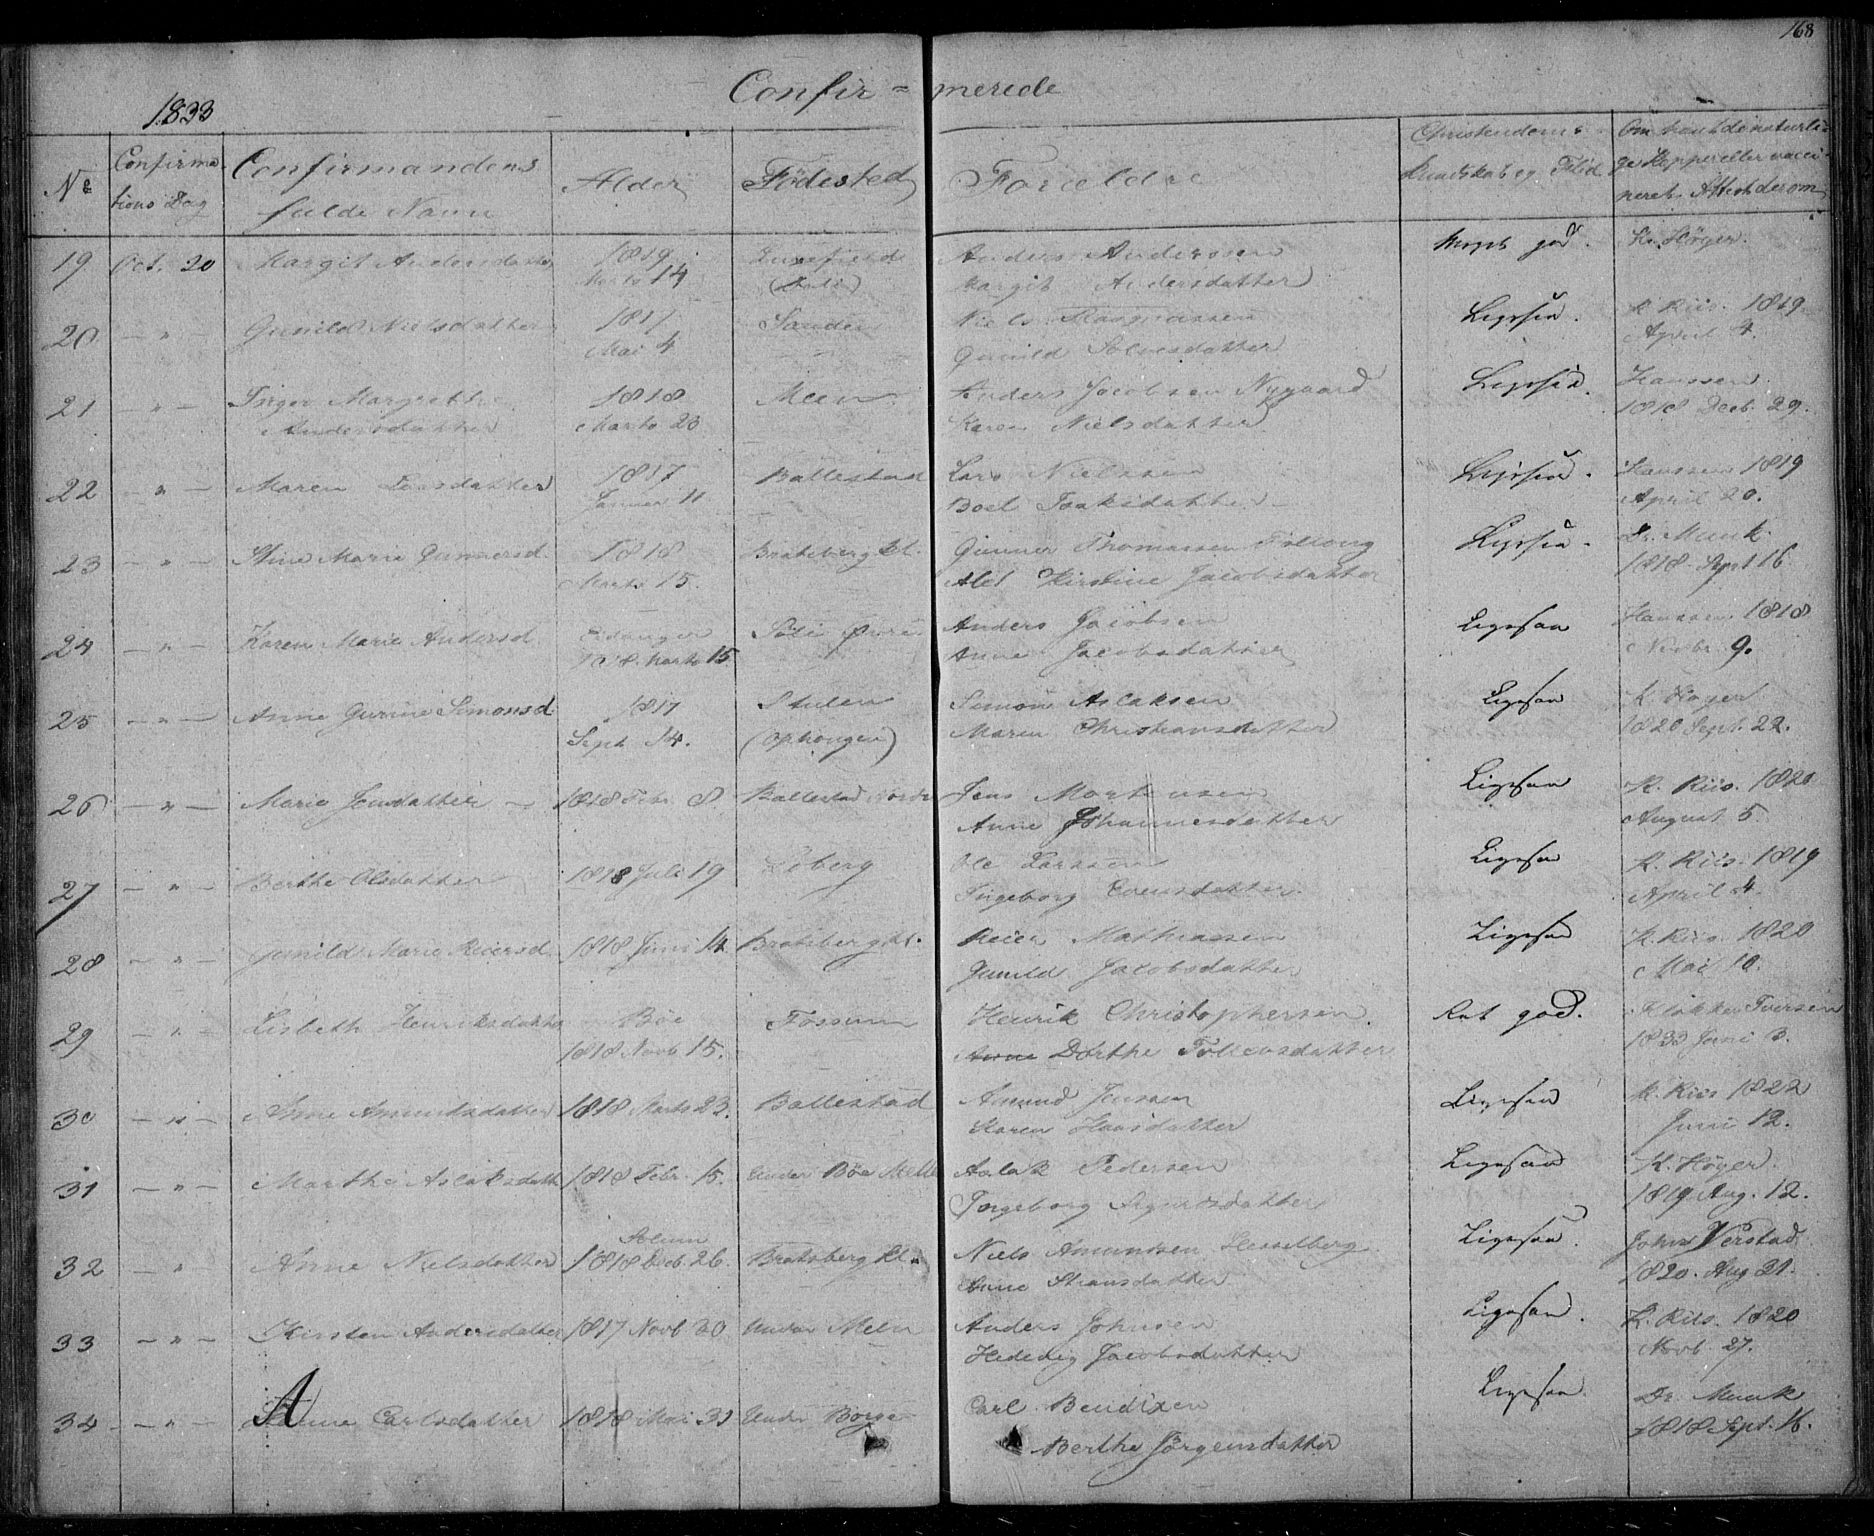 168
1833
Confir = merede
No
Confirma-
tions Dag
Confirmandens
fulde Navn
Alder
Födested
Forældre
Christendoms
Kundskab og Flid
Om havt de naturli-
ge Kopper eller vacci-
neret. Attest derom
19 Oct. 20 Margit Andersdatter 1819 Anders Anderssen Meget god. K. Høyer.
Marts 14 Margit Andersdatter
20 — " — Gunild Nielsdatter 1817 Sanden Niels Ligesaa. K. Riis. 1819
Mai 4 Gunild Solvesdatter April 4.
21 — " — Inger Margrethe 1818 Meen Anders Jacobsen Nygaard Ligesaa. Hanssen
Andersdatter Marts 23 Karen Nielsdatter 1818 Decb. 29.
22 — " — Maren Larsdatter 1817 Ballestad Lars Nielssen Ligesaa. Hanssen 1819
Januar 11 Boel Isaksdatter April 20.
23 — " — Stine Marie Gunnersd. 1818 Bratsberg Kl. Gunner Thomassen Follaug Ligesaa. Dr. Munk.
Marts 15. Alet Kirstine Jacobsdatter 1818 Sept 16
24 — " — Karen Marie Andersd. Eidanger Anders Jacobsen Ligesaa Hanssen 1818
1818 Marts 15 Anne Jacobsdatter Novbr 9.
25 — " — Anne Gurine Simonsd. 1817 Stulen Simon Aslaksen Ligesaa K. Høyer
Sept 14. (Ophougen) Maren Christiansdatter 1820 Sept. 22.
26 — " — Marie Jensdatter 1818 Febr 8 Ballestad Nordre Jens Mortensen Ligesaa K. Riis. 1820
Anne Johannesdatter August 5.
27 — " — Berthe Olsdatter 1818 Juli 19 Loberg Ole Larssen Ligesaa K. Riis. 1819
Ingeborg Evensdatter April 4.
28 — " — Gunild Marie Reiersd. 1818 Juni 14 Bratsberg Kl. Reier Mathiassen Ligesaa K. Riis. 1820
Gunild Jacobsdatter Mai 10.
29 — " — Lisbeth Henriksdatter Böe Fossum Henrik Christophersen. Ret god. Klokker Iversen
1818 Novb 15. Anne Dorthe Tollevsdatter 1833 Juni 3.
30 — " — Anne Amundsdatter 1818 Marts 23. Ballestad Amund Jenssen Ligesaa K. Riis 1822
Karen Hansdatter Juni 12.
31 — " — Marthe Aslaksdatt 1818 Febr. 15. Under Böe Melle Aslak Pedersen Ligesaa K. Höyer.
Ingeborg Sigurdsdatter 1819 Aug. 12.
32 — " Anne Nielsdatter Solum Bratsberg Kl. Niels Amundsen Hesselberg Ligesaa. John Verstad
1818 Decb. 26. Anne Simonsdatter 1820. Aug 21.
33 — " — Kirsten Andersdatter 1817 Novb 30 Under Melu Anders Johnsen Ligesaa. K. Riis. 1820
Hedevig Jacobsdatter Novb. 27.
34 — " — Anne Carlsdatter 1818 Mai 31 Under Borge Carl Bendixen Ligesaa. Dr. Munk
Berthe Jørgensdatter 1818 Sept. 16.